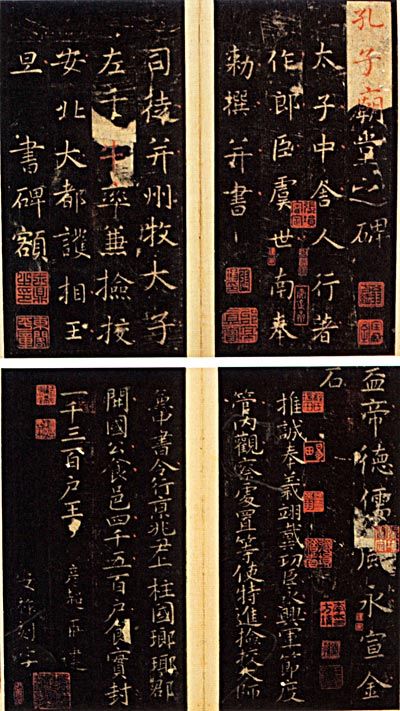 孔子廟堂之碑
太子中舍人行著
作郎臣虞世南奉
勑撰并書
司徒并州牧大子
左千牛率兼撿挍
安北大都護相王
旦書碑額
帝德儒風永宣金
石
推誠奉義翊戴功臣永興軍節度
管内觀察處置等使特進撿挍太師
兼中書令行京兆尹上柱國瑯瑘郡
開國公食邑四千五百户食實封
一千三百户王彦超再建
安祚刻字